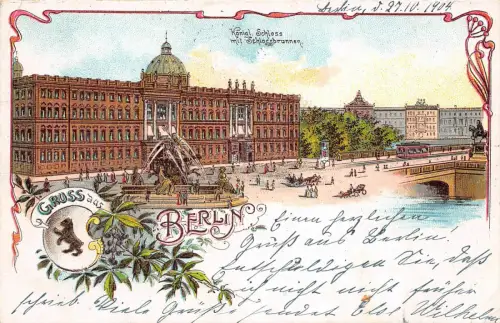 Berlin, d. 27.10.1904
Königl. Schloss
mit Schlossbrunnen.
GRUSS aus
BERLIN
Einen herzlichen
Gruß aus Berlin!
Entschuldigen Sie, daß
ich nicht nicht früher
schrieb. Viele Grüße sendet Else Wilhelm